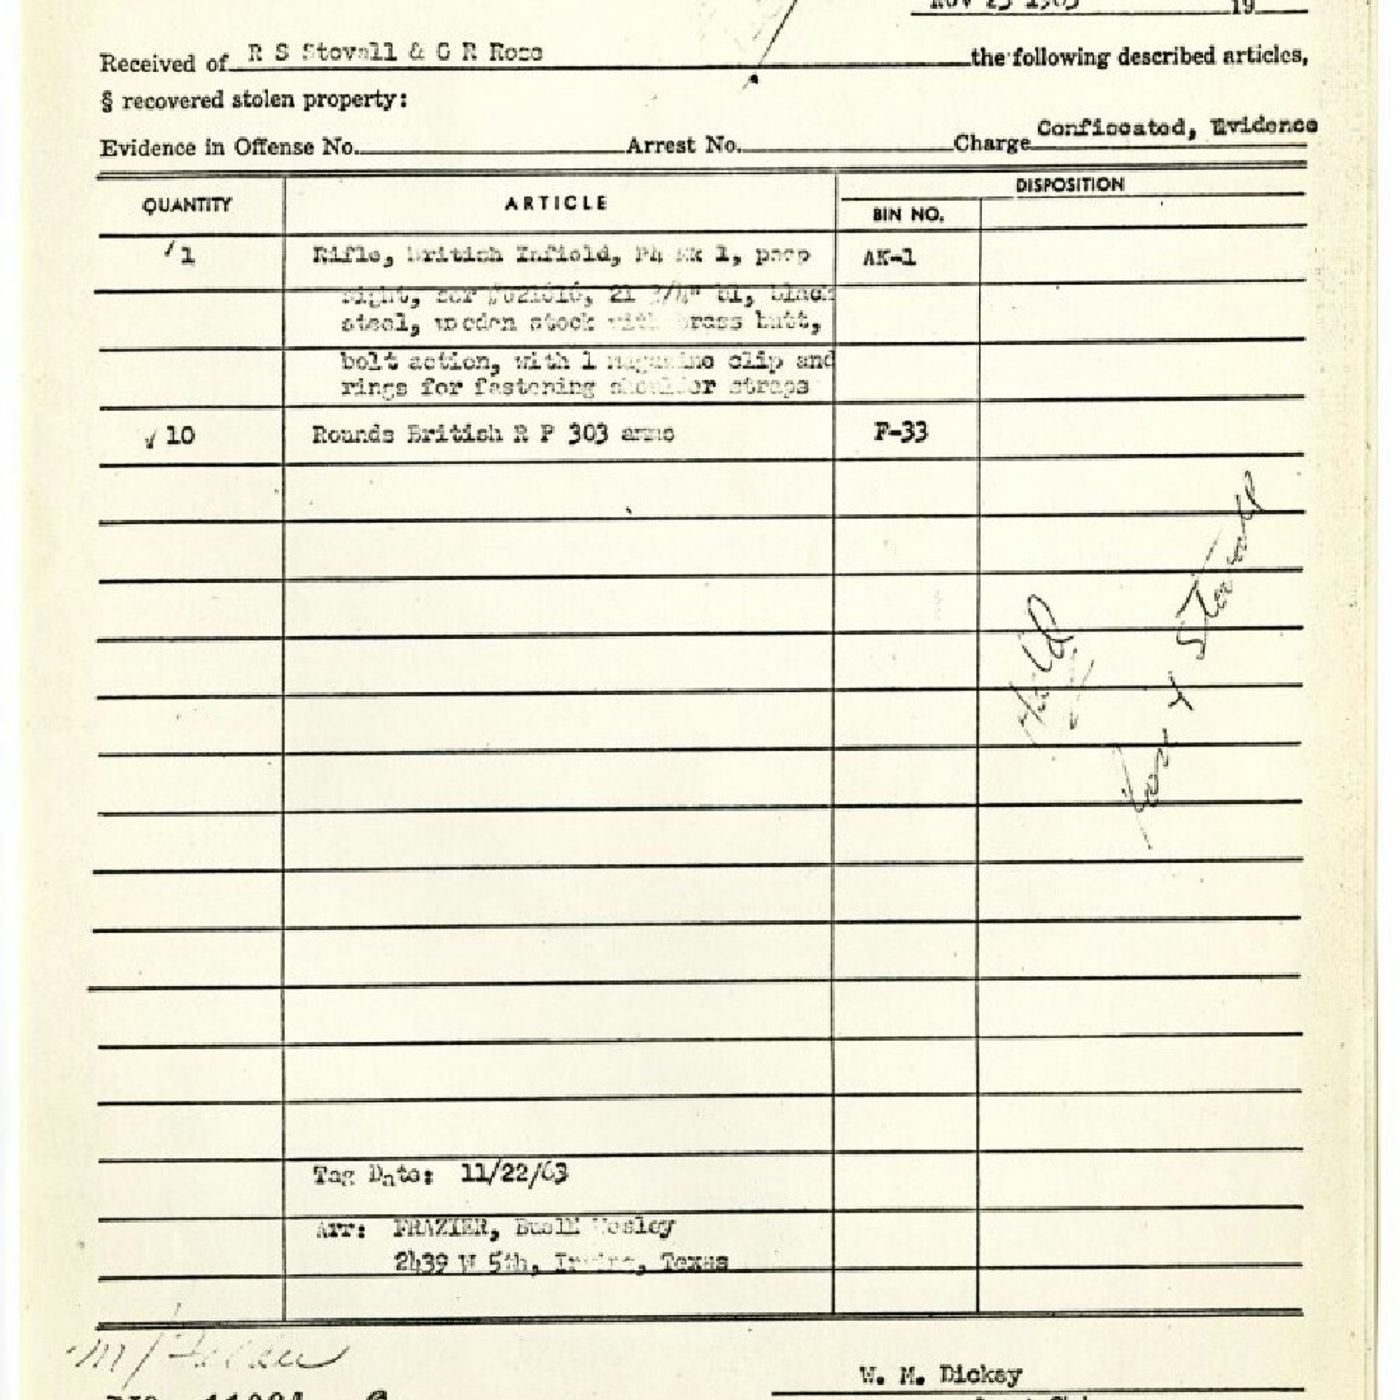 Nov 23 1963 19
Received of R S Stovall & G R Rose the following described articles,
§ recovered stolen property:
Evidence in Offense No. Arrest No. Charge Confiscated, Evidence
QUANTITY ARTICLE DISPOSITION
BIN NO.
1 Rifle, British Infield, Mk 1, peep AK-1
sight, ser 21 3/4" bl, black
steel, wooden stock with brass butt,
bolt action, with 1 magazine clip and
rings for fastening shoulder straps
10 Rounds British R P 303 ammo F-33
Hold
Rose & Stovall
Tag Date: 11/22/63
Arr: FRAZIER, Buell Wesley
2439 W 5th, Irving, Texas
W. M. Dickey